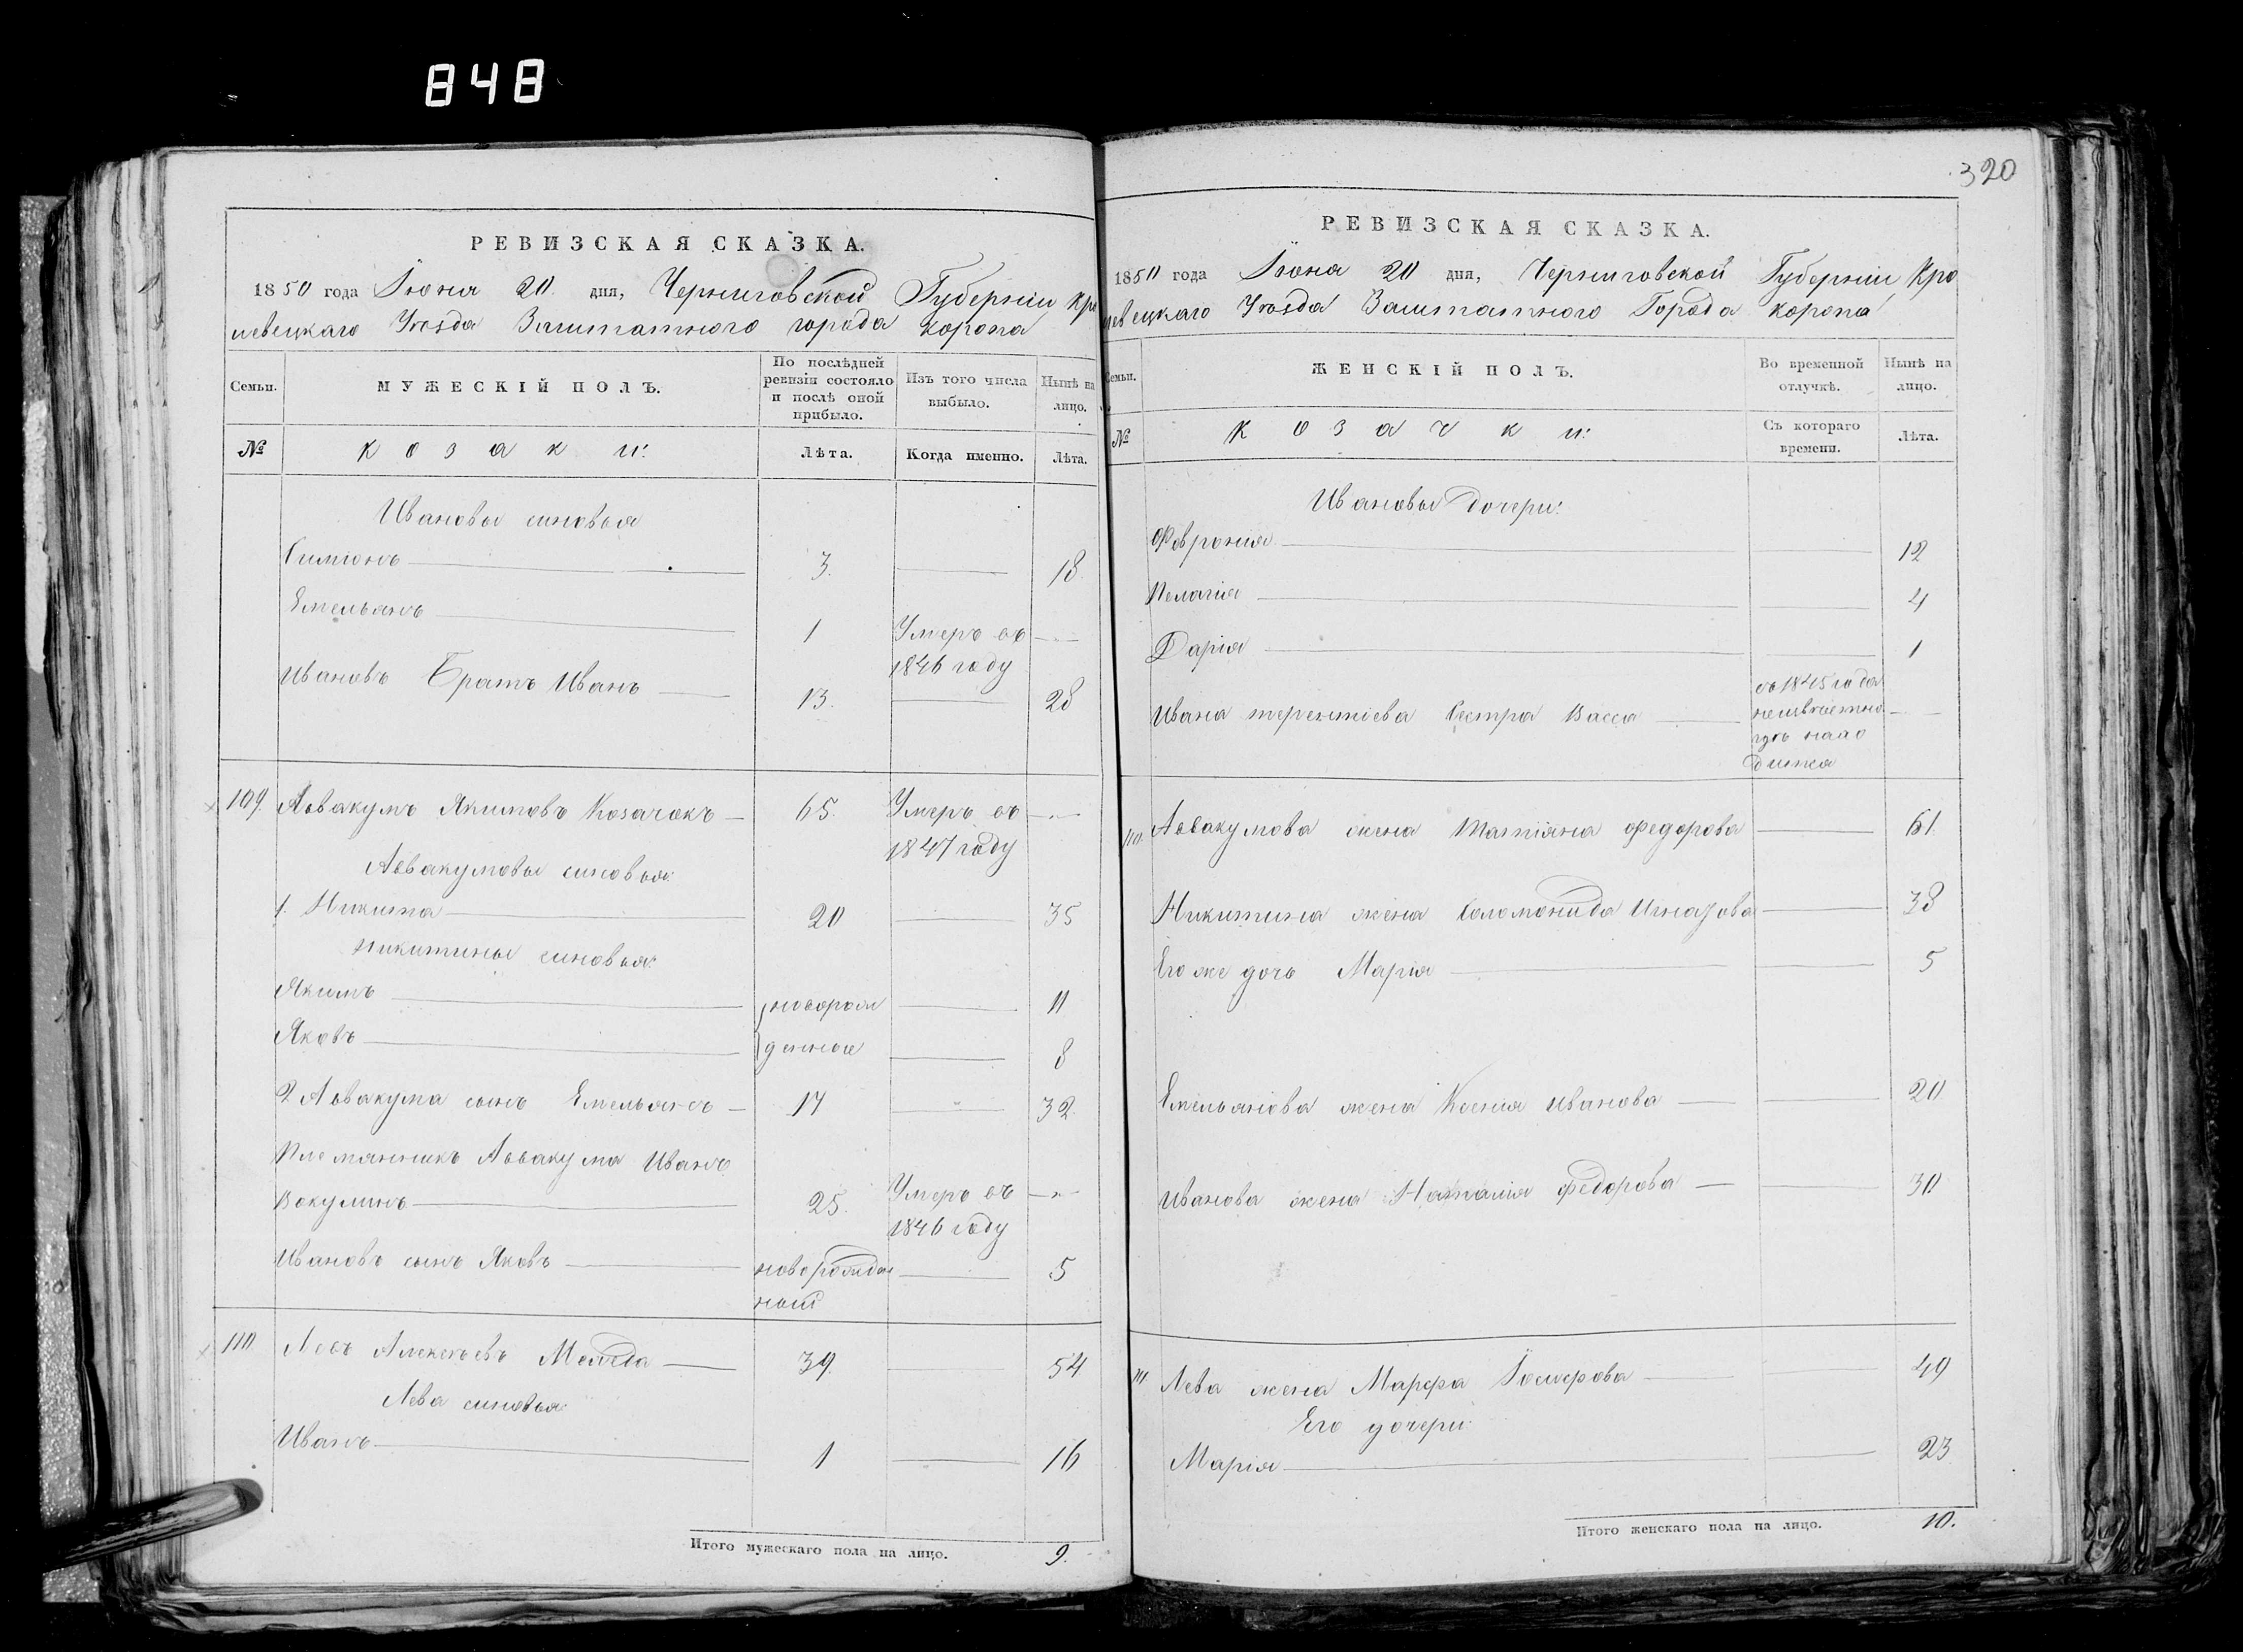 848
320
РЕВИЗСКАЯ СКАЗКА.
1850 года Іюня 20 дня, Черниговской Губерніи Кро
левецкаго Уѣзда Заштатного города Коропа
Семьи. МУЖЕСКІЙ ПОЛЪ. По послѣдней ревизіи состояло и послѣ оной прибыло. Изъ того числа выбыло. Нынѣ на лицо.
№ Козаки: Лѣта. Когда именно. Лѣта.
Ивановы синовья
Симіонъ 3. 18
Емельянъ 1 Умеръ въ
1846 году
Ивановъ Братъ Иванъ 13. 28
109. Аввакумъ Якимовъ Козачокъ 65. Умеръ въ
1847 году
Аввакумовы синовья:
1. Никита 20 35
Никитины синовья:
Якимъ новорож 11
Яковъ денные 8
2 Аввакума сынъ Емельянъ 17 32.
Племянникъ Аввакума Иванъ
Вакулинъ 25. Умеръ въ
1846 году
Ивановъ сынъ Яковъ новорожден 5
ный
110 Левъ Алексѣевъ 39. 54
Лева синовья:
Иванъ 1 16
Итого мужескаго пола на лицо. 9.
РЕВИЗСКАЯ СКАЗКА.
1850 года Іюня 20 дня, Черниговской Губерніи Кро
левецкаго Уѣзда Заштатного Города Коропа
Семьи. ЖЕНСКІЙ ПОЛЪ. Во временной отлучкѣ. Нынѣ на лицо.
№ Козачки: Съ котораго времени. Лѣта.
Ивановы дочери:
Феврония 12
Пелагія 4
Дарія 1
съ 1845 года
Ивана терентіева Сестра Васса неизвѣстно
гдѣ нахо
дится
110 Аввакумова жена Татіяна федорова 61.
Никитина жена Соломонида Игнатова 38
Его же дочь Марія 5
Емельянова жена Ксенія иванова 20
Иванова жена Наталія федорова 30
111 Лева жена Марфа Іосифова 49
Его дочери:
Марія 23
Итого женскаго пола на лицо. 10.